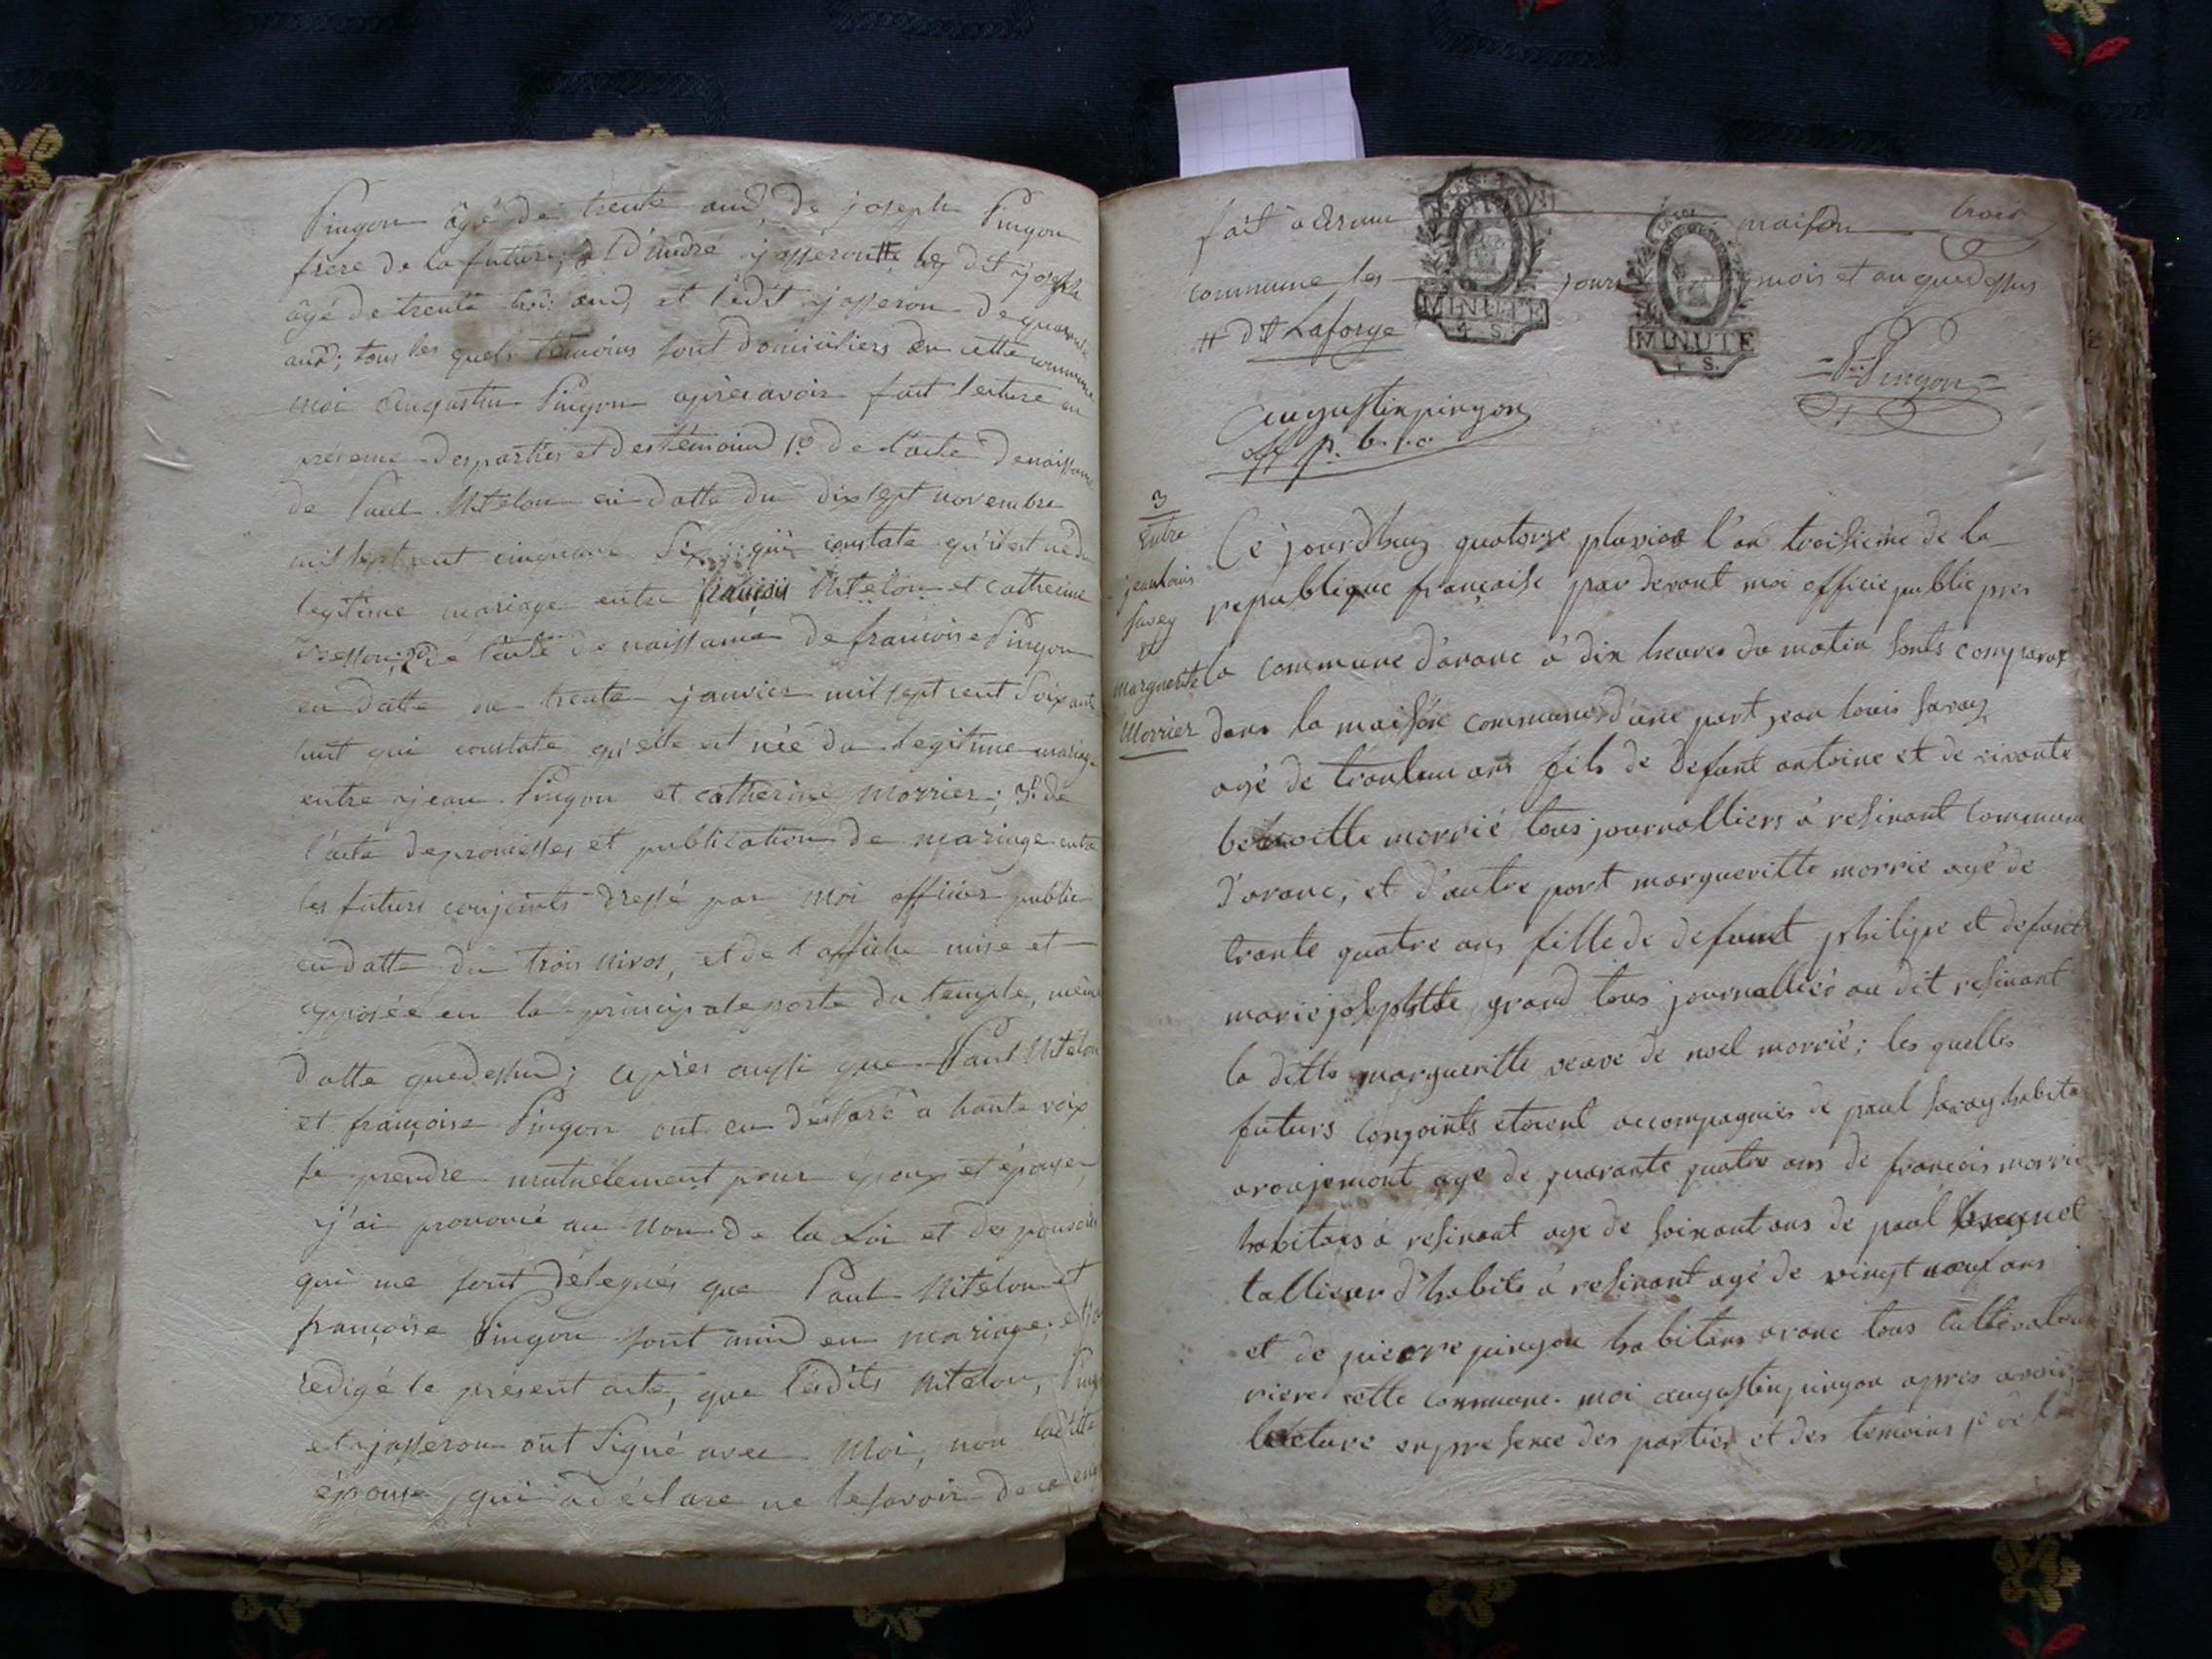 Pingon âgé de trente ans, de joseph Pingon
frere de la future, & d'andré josseron # les dit joseph
âgé de trente trois ans, et ledit josseron de quarante
ans; tous les quels témoins sont domiciliers en cette commune
moi augustin Pingon après avoir fait lecture en
présence des parties et des témoins 1º de l'acte de naissance
de Paul Mitelon en datte du dix sept novembre
mil sept cent cinquante six qui constate qu'il est né du
legitime mariage entre françois Mitelon et catherine
2º de l'acte de naissance de francoise Pingon
en datte du trente janvier mil sept cent soixante
huit qui constate qu'elle est née du legitime mariage
entre jean Pingon et catherine Morrier; 3º de
l'acte de promesses et publication de mariage entre
les futurs conjoints dressé par moi officier public
en datte du trois nivos, et de l'affiche mise et
apposée en la principale porte du temple, même
datte que dessus; après aussi que Paul Mitelon
et françoise Pingon ont eu déclaré a haute voix
se prendre mutuelement pour époux et épouse,
j'ai prononcé au nom de la Loi et des pouvoirs
qui me sont délegués que Paul Mitelon et
françoise Pingon sont unis en mariage, et j'ai
redigé le présent acte, que lesdits Mitelon, Pingon
et josseron ont signé avec Moi, non ladite
épouse, qui a déclare ne le savoir de ce
fait a maison trois
commune les jours mois et an que dessus
# dt Laforge
MINUTE
4 S.
MINUTE
4 S.
P. Pingon
augustin pingon
off p. b. l. c.
3
Entre
jean louis
savey
et
Marguerite
Morrier
Ce jourdhuy quatorze pluvios l'an troisieme de la
republique française par devant moi officie public pres
la commune d'aranc a dix heures du matin sonts comparat
dans la maison commune d'une part jean louis savay
agé de ans fils de defunt antoine et de vivante
morrié tous journalliers a resinant commune
d'aranc, et d'autre part margueritte morrie agé de
trante quatre ans fille de defunt philipe et defunte
marie josephtte grand tous journalliés au dit resinant
la ditte margueritte veuve de noel morrié; les quelles
futurs conjoints etoient accompagnies de paul savay habitan
age de quarante quatre ans de francois morrie
habitans a resinant age de soixant ans de paul
tallieur d'habits a resinant agé de vingt neuf ans
et de pierre pingon habitans aranc tous cultivateur
riere cette commune. moi augustin pingon apres avoir
lecture en presence des parties et des temoins